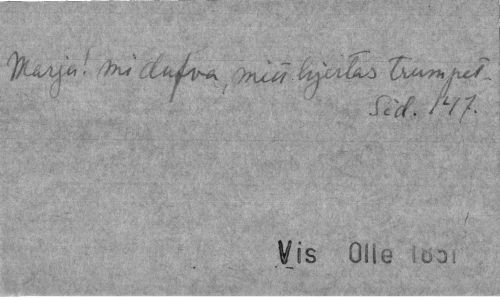 Marja! mi dufva, min hjertas trumpet
Sid. 147.
Vis Olle 1851